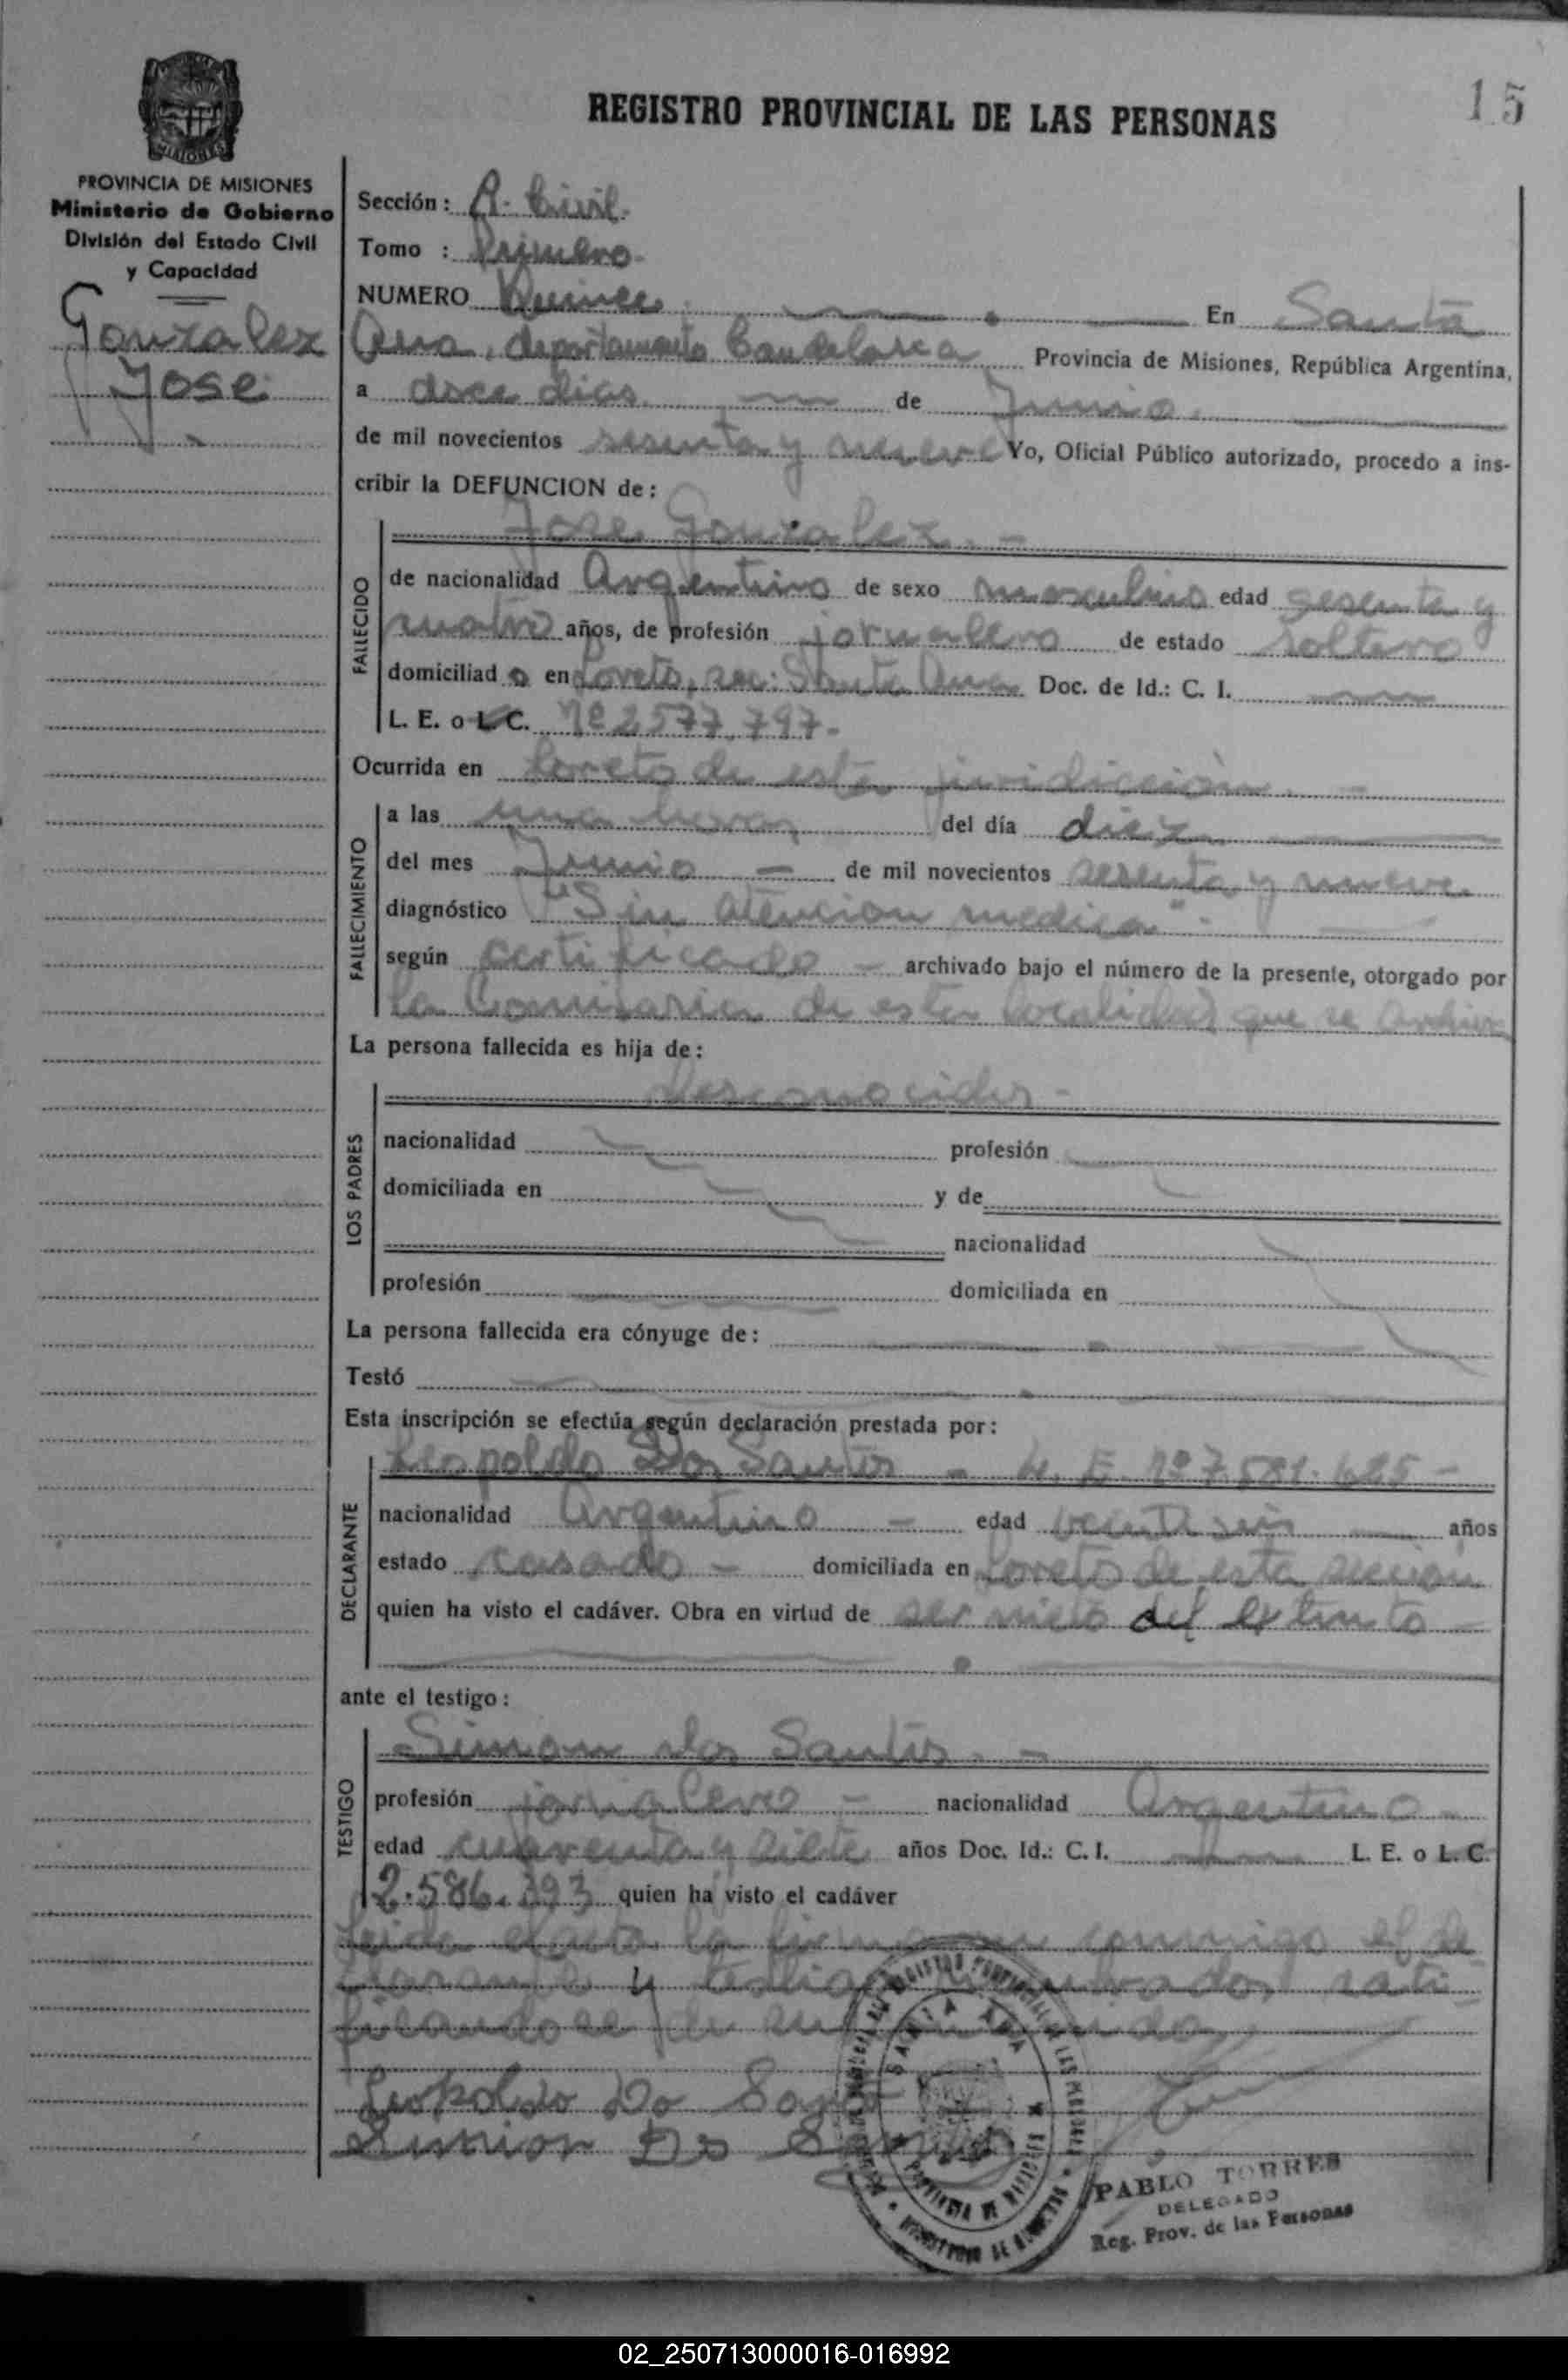 15
REGISTRO PROVINCIAL DE LAS PERSONAS
MISIONES
PROVINCIA DE MISIONES
Ministerio de Gobierno
División del Estado Civil
y Capacidad
Gonzalez
Jose
Sección: R. Civil.
Tomo : Primero.
NUMERO Quince En Santa
Ana, departamento Candelaria Provincia de Misiones, República Argentina,
a doce dias de Junio.
de mil novecientos sesenta y nueve Yo, Oficial Público autorizado, procedo a ins-
cribir la DEFUNCION de:
Jose Gonzalez. -
FALLECIDO
de nacionalidad Argentino de sexo masculino edad sesenta y
cuatro años, de profesión jornalero de estado soltero
domiciliado en Loreto, sec: Santa Ana Doc. de Id.: C. I.
L. E. o L. C. Nº 2577.797-
Ocurrida en Loreto de esta juridiccion. -
FALLECIMIENTO
a las una hora del día diez
del mes Junio - de mil novecientos sesenta y nueve
diagnóstico "Sin atencion medica".
según certificado - archivado bajo el número de la presente, otorgado por
la Comisaria de esta localidad que se archiva
La persona fallecida es hija de:
desconocidos -
LOS PADRES
nacionalidad profesión
domiciliada en y de
nacionalidad
profesión domiciliada en
La persona fallecida era cónyuge de:
Testó
Esta inscripción se efectúa según declaración prestada por:
Leopoldo Dos Santos - L. E. Nº 7.581.625 -
DECLARANTE
nacionalidad Argentino - edad veintiseis años
estado casado - domiciliada en Loreto de esta sección
quien ha visto el cadáver. Obra en virtud de ser nieto del extinto
ante el testigo:
Simon dos Santos. -
TESTIGO
profesión jornalero - nacionalidad Argentino -
edad cuarenta y siete años Doc. Id.: C. I. L. E. o L. C.
2.586.393 quien ha visto el cadáver
Leida el acta la firman conmigo el de-
clarante y testigo nombrados, rati-
ficandose de su contenido.
Leopoldo Do Santo
Simion Do Santos
SANTA ANA
PROVINCIA DE MISIONES
PABLO TORRES
DELEGADO
Reg. Prov. de las Personas
02_250713000016-016992